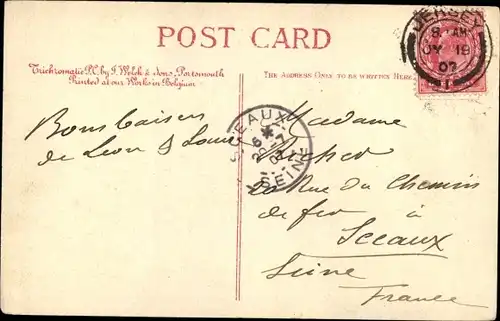 POST CARD
Trichromatic P.C. by J. Welch & Sons, Portsmouth
Printed at our Works in Belgium
THE ADDRESS ONLY TO BE WRITTEN HERE.
JERSEY
8. AM
JY 19
07
SCEAUX
20 -7
07
SEINE
Bons baisers
de Léon &
Madame
20 Rue du Chemin
de fer à
Sceaux
Seine
France